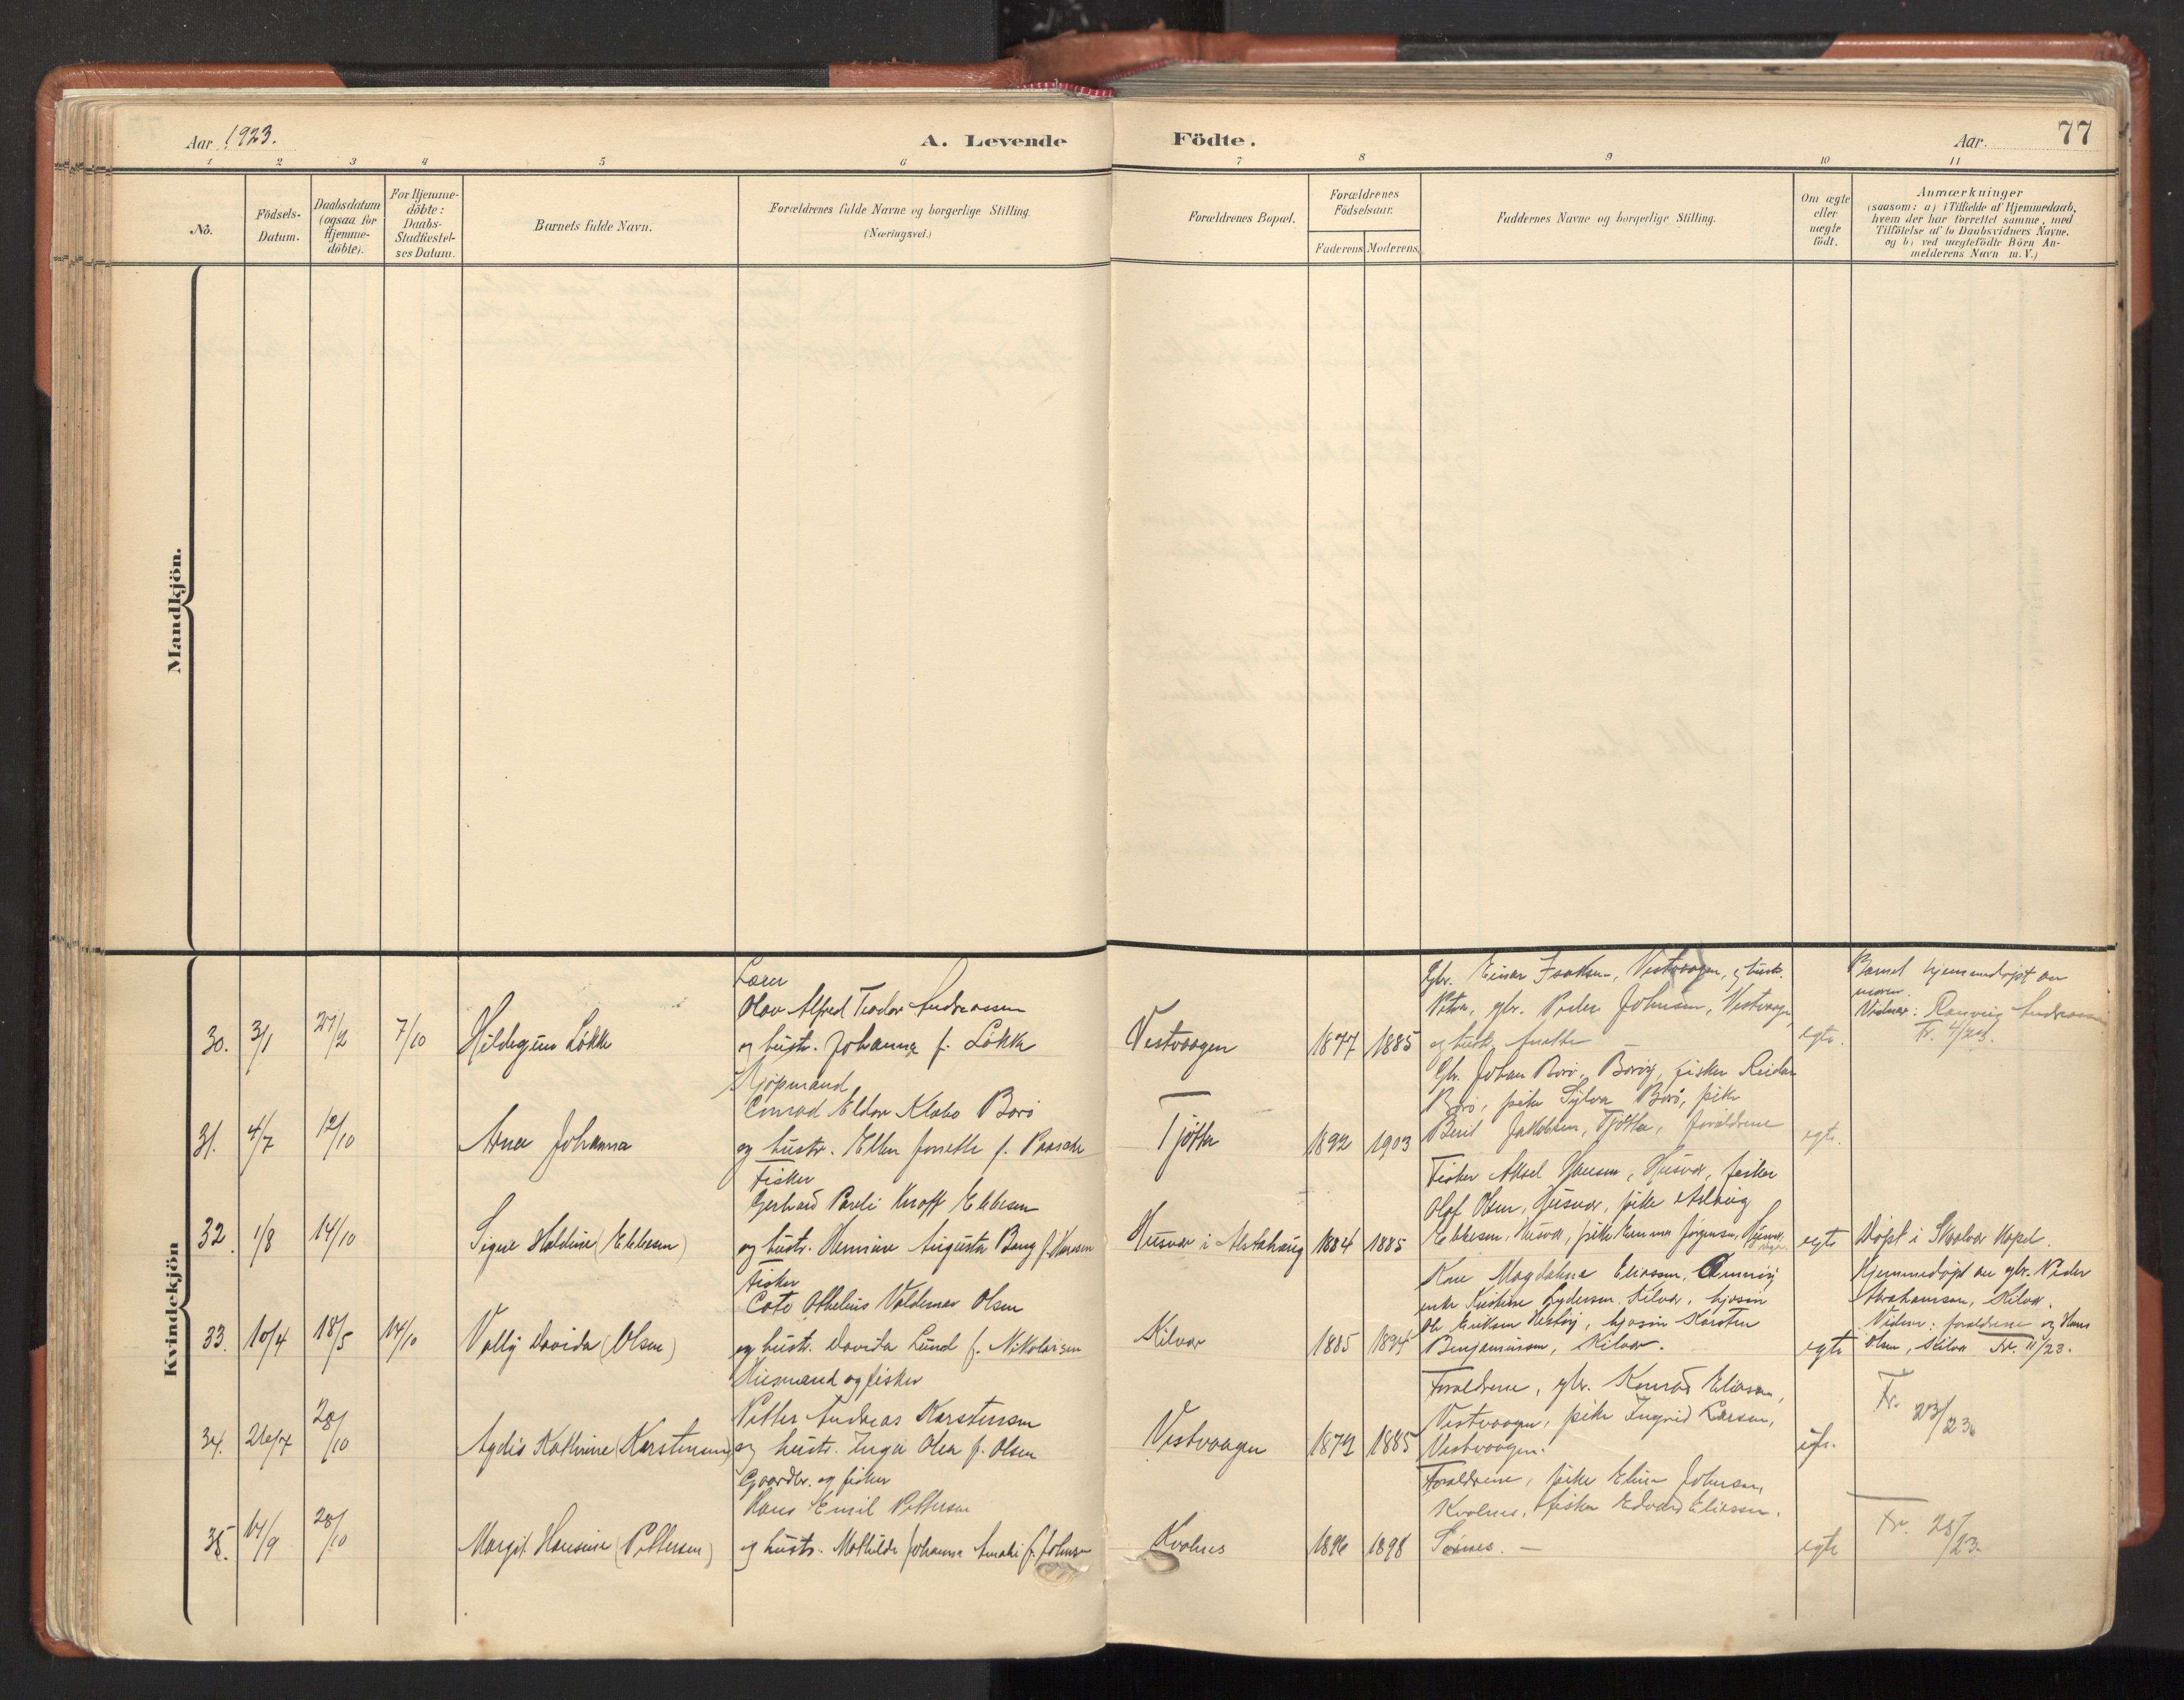 Aar 1923.
A. Levende
Födte.
Aar
77
1 2 3 4 5 6 7 8 9 10 11
No.
Födsels-
Datum.
Daabsdatum
(ogsaa for
Hjemme-
döbte).
For Hjemme-
döbte:
Daabs-
Stadfæstel-
ses Datum.
Barnets fulde Navn.
Forældrenes fulde Navne og borgerlige Stilling.
(Næringsvei.)
Forældrenes Bopæl.
Forældrenes
Födselsaar.
Faderens
Moderens.
Faddernes Navne og borgerlige Stilling.
Om ægte
eller
uægte
födt.
Anmærkninger
(saasom: a) i Tilfælde af Hjemmedaab,
hvem der har forrettet samme, med
Tilföielse af to Daabsvidners Navne,
og b) ved uægtefödte Börn An-
melderens Navn m.V.)
Mandkjön.
Kvindekjön
30. 3/1 7/10 Hildegunn Løkke
Lærer
Olav Alfred Teodor Andreassen
og hustr. Johanna f. Løkke
Vestvaagen 1877 1885
Gbr. Einar Isaksen, Vestvaagen, og hustr.
Petra, gbr. Peder Johnsen, Vestvaagen
og hustr. Anette
egte.
Barnet hjemmedøpt av
moren.
Vidner: Ranveig Andreassen
31. 4/7 12/10 Arna Johanna
Kjøpmand
Conrad Eldor Klæbo Borø
og hustr. Ellen Jonette f. Paasche
Tjøtta 1892 1903
Gbr. Johan Borø, Borøy, fisker Reidar
Borø, pike Sylva Borø, pike
Berit Jakobsen, Tjøtta, forældrene
egte.
32. 1/8 14/10 Signe Haldine (Ebbesen)
Fisker
Gerhard Pareli Knoff Ebbesen
og hustr. Hermine Augusta Bang f. Hansen
Husvær i Alstahaug 1884 1885
Fisker Aksel Hansen, Husvær, fisker
Olaf Olsen, Husvær, pike Aslaug
Ebbesen, Husvær, pike Emma Jørgensen, Husvær
egte Døpt i Skaalvær Kapel.
33. 10/4 18/5 14/10 Vally Davida (Olsen)
Fisker
Coto Othelius Valdemar Olsen
og hustr. Davida Lund f. Nikolaisen
Kilvær 1885 1894
Kone Magdalena Eliassen,
enke Kristine Lydersen Kilvær, hjosin
Ole Eriksen Hestøy, hjosin Karsten
Benjaminsen, Kilvær.
egte
Hjemmedøpt av gbr. Peder
Abrahamsen, Kilvær.
Vidner: forældrene og Hans
Olsen, Kilvær Fr. 11/23.
34. 26/7 28/10 Aydis Kathrine (Karstensen)
Husmand og fisker
Petter Andreas Karstensen
og hustr. Inga Olea f. Olsen
Vestvaagen 1879 1885
Forældrene, gbr. Konrad Eliassen,
Vestvaagen, pike Ingrid Larsen,
Vestvaagen.
Fr. 23/23.
35. 14/9 28/10 Margit Hansine (Pettersen)
Gaardbr. og fisker
Hans Emil Pettersen
og hustr. Mathilde Johanna Amalie f. Johnsen
Kvalnes 1896 1898
Forældrene, pike Elise Johnsen,
Kvalnes, fisker Edvard Eliassen.
Sørnes. —
egte
Fr. 28/23.